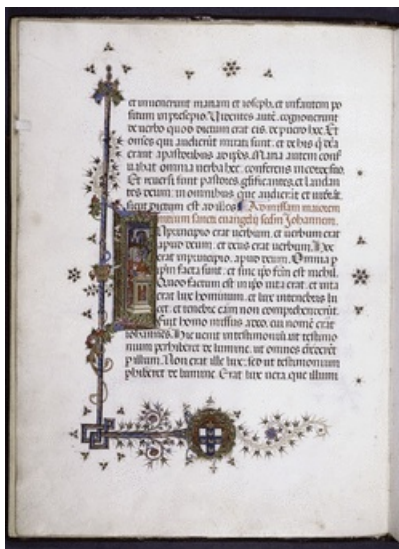 et invenerunt mariam et ioseph. et infantem po
situm in presepio. Videntes autē. cognoverunt
de verbo quod dictum erat eis. de puero hoc. Et
omēs qui audierunt mirati sunt. et de his q̄
erant a pastoribus ad ip̄os. Maria autem conſ
vabat omnia verba hec. conferens in corde suo.
Et reversi sunt pastores glificantes. et laudan
tes deum. in omnibus que audierāt et viderāt.
sicut dictum est ad illos. Ad missam maiorem
Initium sancti evangelij scḋm Johannem.
In principio erat verbum. et verbum erat
apud deum. et deus erat verbum. Hoc
erat in principio. apud deum. Omnia p̄
ip̄m facta sunt. et sine ip̄o fc̄m est nichil.
Quod factum est in ip̄o vita erat. et vita
erat lux hominum. et lux in tenebris lu
cet. et tenebre eām non comprehenderūt.
Fuit homo missus a deo. cui nomē erat
iohannes. Hic venit in testimoniū. ut testimo
nium perhiberet de lumine. ut omnes crederēt
p̄ illum. Non erat ille lux. sed ut testimonium
p̄hiberet de lumine. Erat lux vera que illumi